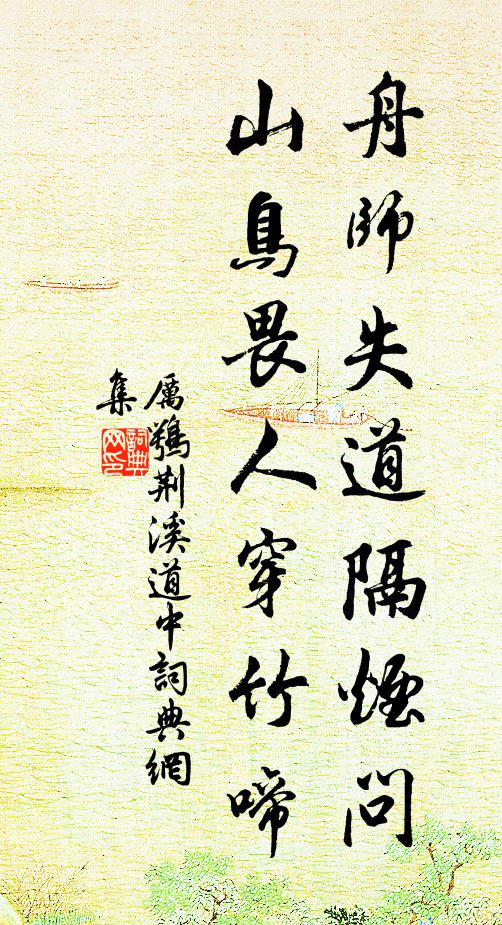 舟師失道隔煙問
山鳥畏人穿竹啼
厲鶚荆溪道中詞典網
集
詞典